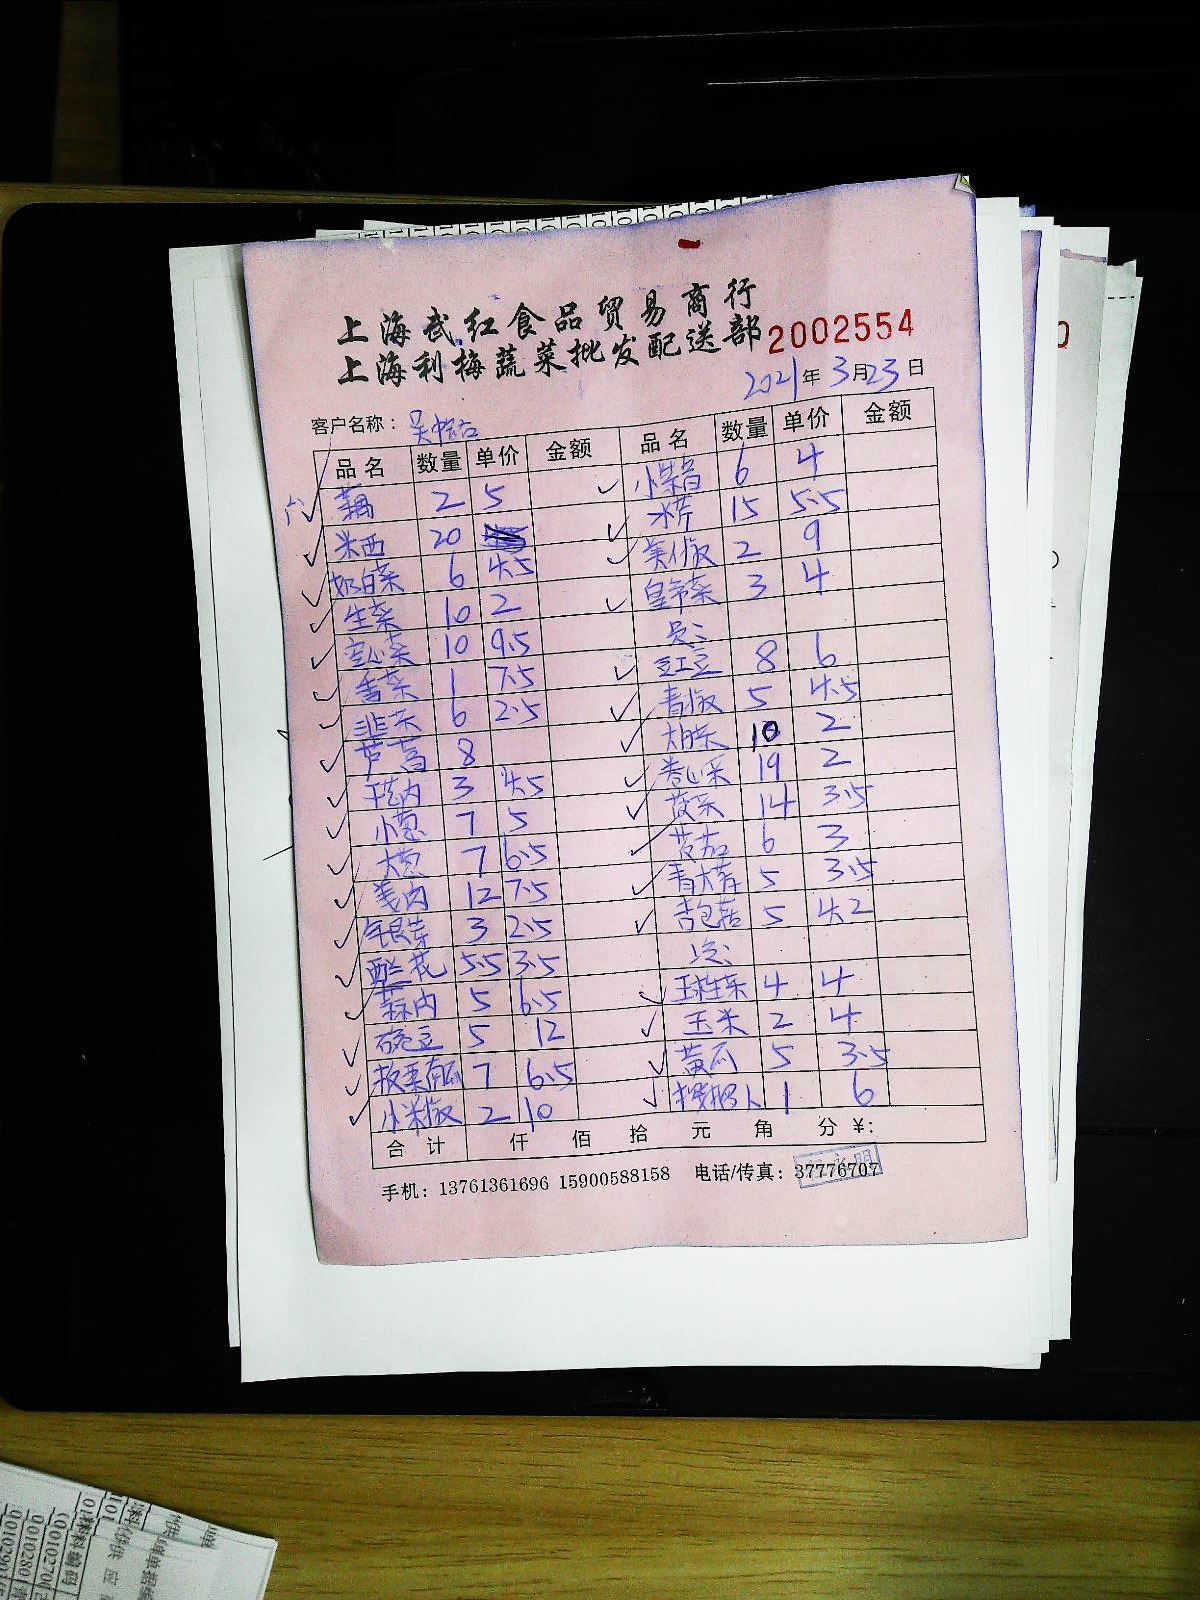 上海武红食品贸易商行
上海利梅蔬菜批发配送部 2002554
2021年3月23日
客户名称：
品名 数量 单价 金额 品名 数量 单价 金额
藕 2 5
米西 20
奶白菜 6 4.5
生菜 10 2
空心菜 10 9.5
香菜 1 7.5
韭菜 6 2.5
芦蒿 8
3 4.5
小葱 7 5
大葱 7 6.5
姜肉 12 7.5
银芽 3 2.5
西兰花 5.5 3.5
蒜肉 5 6.5
豌豆 5 12
板栗南瓜 7 6.5
小米椒 2 10
6 4
水芹 15 5.5
美人椒 2 9
皇帝菜 3 4
豇豆 8 6
青椒 5 4.5
大白菜 10 2
卷心菜 19 2
菠菜 14 3.5
茄 6 3
青大蒜 5 3.5
杏包菇 5 4.2
球生菜 4 4
玉米 2 4
黄瓜 5 3.5
1 6
合计 仟 佰 拾 元 角 分 ¥：
手机：13761361696 15900588158 电话/传真：37776707